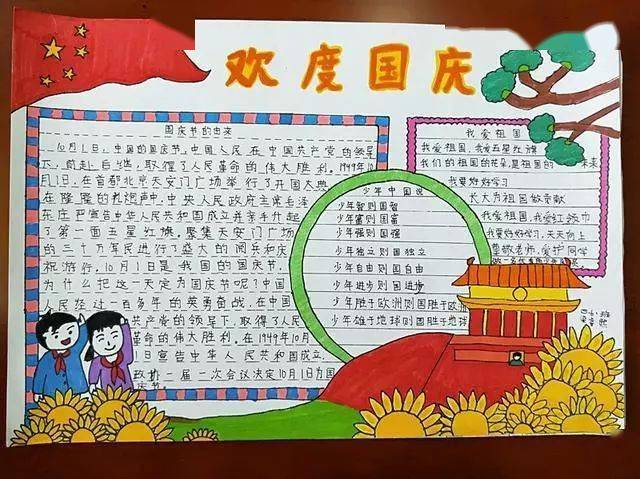 欢度国庆
国庆节的由来
10月1日,中国的国庆节,中国人民在中国共产党的领导
下,前赴后继,取得了人民革命的伟大胜利。1949年10
月1日,在首都北京天安门广场举行了开国大典
在隆隆的礼炮声中,中央人民政府主席毛泽
东庄严宣告中华人民共和国成立并亲手升起
了第一面五星红旗。聚集天安门广场
的三十万军民进行了盛大的阅兵和庆
祝游行。10月1日是我国的国庆节。
为什么把这一天定为国庆节呢?中国
人民经过一百多年的英勇奋战,在中国
共产党的领导下,取得了人民
革命的伟大胜利。在1949年10月
1日宣告中华人民共和国成立.
政协一届一次会议决定10月1日为国
庆节。
少年中国说
少年智则国智
少年富则国富
少年强则国强
少年独立则国独立
少年自由则国自由
少年进步则国进步
少年胜于欧洲则国胜于欧洲
少年雄于地球则国胜于地球
我爱祖国
我爱祖国,我爱五星红旗
我们的祖国的花朵,是祖国的 未来
我要好好学习
长大为祖国做贡献
我爱祖国,我爱红领巾
我要好好学习,天天向上
尊敬老师,爱护同学